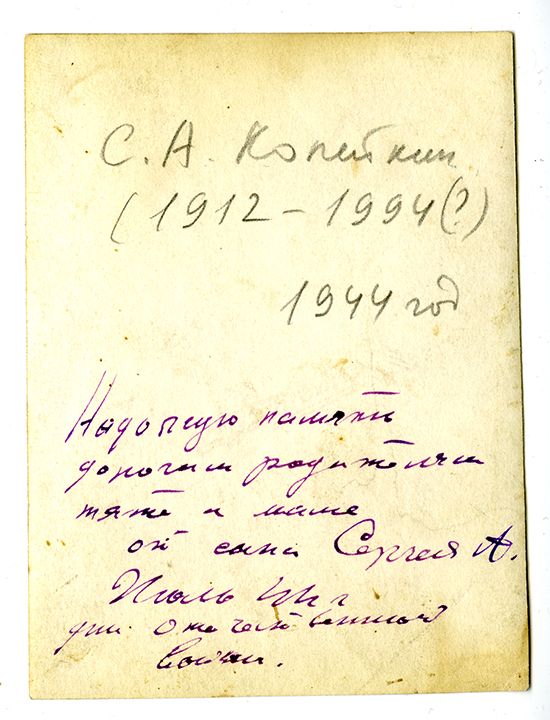 С. А. Копейкин
(1912 – 1994 (?)
1944 год
На долгую память
дорогим родителям
тяте и маме
от сына Сергея А.
Июль 44 г
дни отечественной
войны.